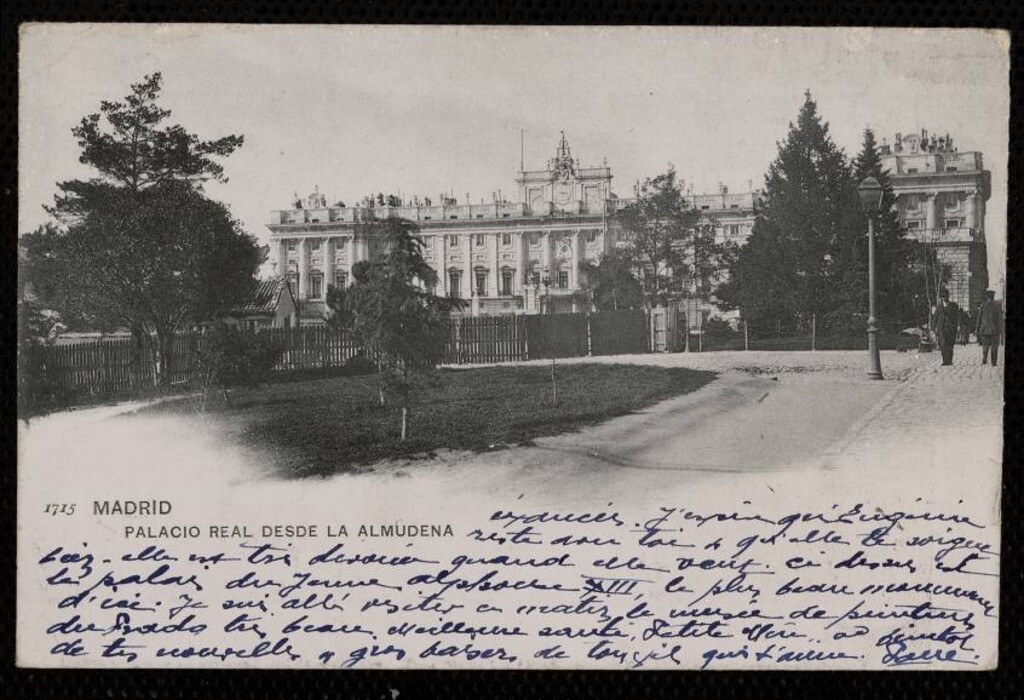 1715 MADRID
PALACIO REAL DESDE LA ALMUDENA
exaucés. J'espère qu'Eugénie
reste avec toi & qu'elle te soigne
bien. elle est très dévouée quand elle veut. ci dessus est
le palais du Jeune alphonse XIII, le plus beau monument
d'ici. Je suis allé visiter ce matin le musée de peinture
du Prado très beau. Meilleure santé, Petite Mère, à bientôt
de tes nouvelles & gros baisers de ton fils qui t'aime.